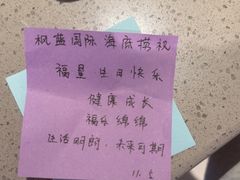 枫蓝国际海底捞祝
福昱 生日快乐
健康成长
福乐绵绵
生活明朗，未来可期
11.5